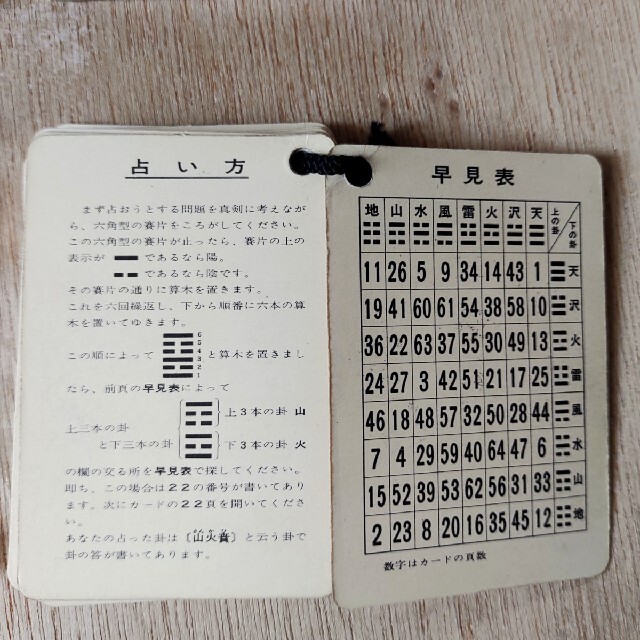 占い方
まず占おうとする問題を真剣に考えなが
ら、六角型の賽片をころがしてください。
この六角型の賽片が止ったら、賽片の上の
表示が ━ であるなら陽。
╍ であるなら陰です。
その賽片の通りに算木を置きます。
これを六回繰返し、下から順番に六本の算
木を置いてゆきます。
6
5
4
3
2
1
この順によって と算木を置きまし
たなら、前頁の早見表によって
上三本の卦 上3本の卦 山
と下三本の卦 下3本の卦 火
の欄の交る所を早見表で探してください。
即ち、この場合は22の番号が書いてあり
ます。次にカードの22頁を開いてくださ
い。
あなたの占った卦は〔山火賁〕と云う卦で
卦の答が書いてあります。
早見表
地 山 水 風 雷 火 沢 天 上の卦 下の卦
☷ ☶ ☵ ☴ ☳ ☲ ☱ ☰
11 26 5 9 34 14 43 1 ☰ 天
19 41 60 61 54 38 58 10 ☱ 沢
36 22 63 37 55 30 49 13 ☲ 火
24 27 3 42 51 21 17 25 ☳ 雷
46 18 48 57 32 50 28 44 ☴ 風
7 4 29 59 40 64 47 6 ☵ 水
15 52 39 53 62 56 31 33 ☶ 山
2 23 8 20 16 35 45 12 ☷ 地
数字はカードの頁数